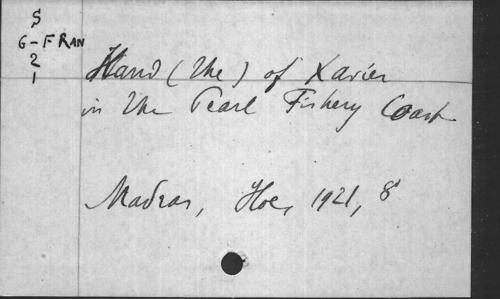 S
G-FRAN
2
1
Hand (the) of Xavier
in the Pearl Fishery Coast
Madras, Hoe, 1921, 8°